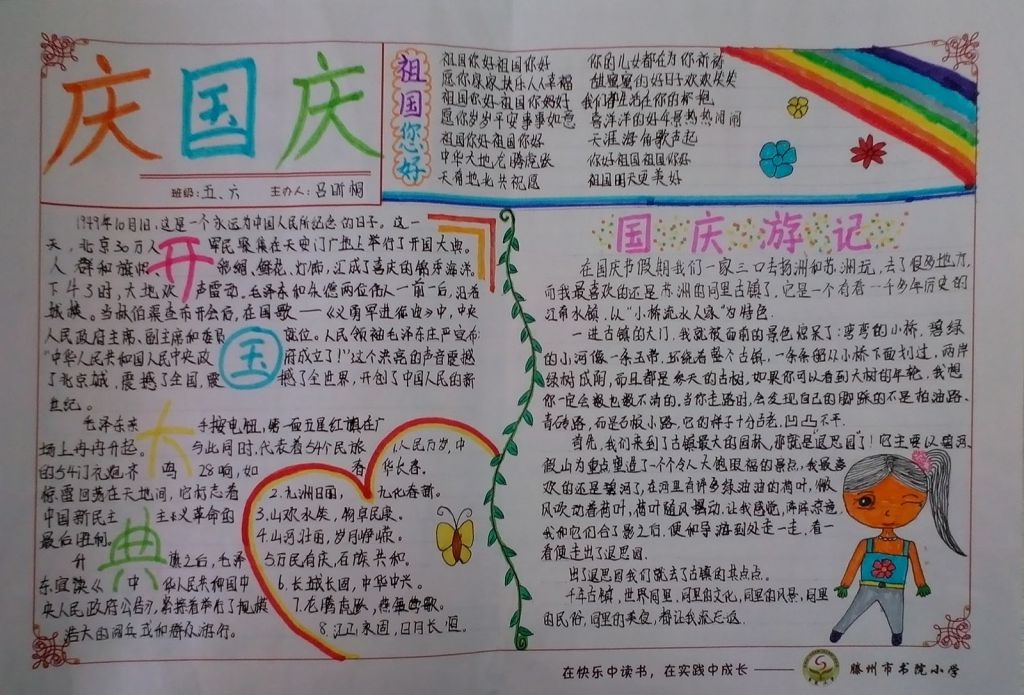 庆国庆
班级：五、六 主办人：吕昕桐
祖国您好
祖国你好祖国你好
愿你保家快乐人人幸福
祖国你好祖国你好
愿你岁岁平安事事如意
祖国你好祖国你好
中华大地龙腾虎跃
天有地北共祝愿
你的儿女都在为你祈祷
甜蜜蜜的好日子欢欢笑笑
我们都生活在你的怀抱
喜洋洋的好年景热热闹闹
天涯海角歌声起
你好祖国祖国你好
祖国明天更美好
开国大典
1949年10月1日，这是一个永远为中国人民所纪念的日子。这一
天，北京30万人 军民聚集在天安门广场上举行了开国大典。
人群和旗帜 彩绸、鲜花、灯饰，汇成了喜庆的锦秀海洋。
下午3时，大地欢 声雷动。毛泽东和朱德两位伟人一前一后，沿着
城楼。当林伯渠宣布开会后，在国歌——《义勇军进行曲》中，中央
人民政府主席、副主席和委员 就位。人民领袖毛泽东庄严宣布：
“中华人民共和国人民中央政 府成立了！”这个洪亮的声音震撼
了北京城，震撼了全国，震 撼了全世界，开创了中国人民的新
世纪。
毛泽东亲 手按电钮，第一面五星红旗在广
场上冉冉升起。 与此同时，代表着54个民族
的54门礼炮齐 鸣 28响，如 春
惊雷回荡在天地间，它标志着
中国新民主 主义革命的
最后胜利。
升 旗之后，毛泽
东宣读《 中 华人民共和国中
央人民政府公告》，紧接着举行了规模
浩大的阅兵式和群众游行。
1.人民万岁，中
华长春。
2.九洲日丽， 九化春新。
3.山欢水笑，物阜民康。
4.山河壮丽，岁月峥嵘。
5.万民有庆，百族共和。
6.长城长固，中华中兴。
7.龙腾虎跃，燕舞莺歌。
8.江山永固，日月长恒。
国庆游记
在国庆节假期我们一家三口去扬洲和苏洲玩，去了很多地方，
而我最喜欢的还是苏洲的同里古镇了，它是一个有着一千多年历史的
江南水镇，以“小桥流水人家”为特色。
一进古镇的大门，我就被面前的景色惊呆了：弯弯的小桥，碧绿
的小河像一条玉带，环绕着整个古镇，一条条船从小桥下面划过，两岸
绿树成阴，而且都是参天的古树，如果你可以看到大树的年轮，我想
你一定会数也数不清的。当你走路时，会发现自己的脚踩的不是柏油路、
青砖路，而是石板小路，它的样子十分古老，凹凸不平。
首先，我们来到了古镇最大的园林，那就是退思园了！它主要以碧河、
假山为重点塑造了一个个令人大饱眼福的景点，我最喜
欢的还是碧河了，在河里有许多绿油油的荷叶，微
风吹动着荷叶，荷叶随风摆动，让我感觉，阵阵凉意，
我和它们合了影之后，便和导游到处走一走，看一
看便走出了退思园。
出了退思园我们就去了古镇的其点点。
千年古镇，世界同里，同里的文化，同里的风景，同里
的民俗，同里的美食，都让我流忘返。
在快乐中读书，在实践中成长—— 滕州市书院小学